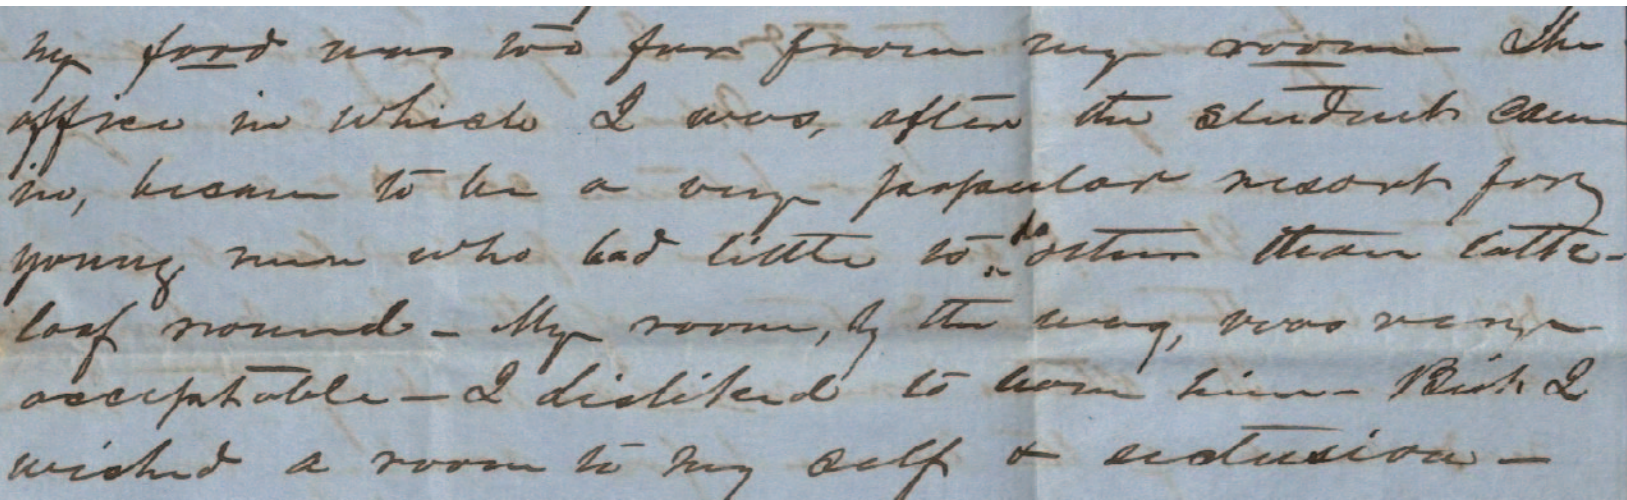 my food was too far from my room — The
office in which I was, after the students came
in, became to be a very popular resort for
young men who had little to do other than talk -
loaf round - My room, by the way, was very
acceptable — I disliked to leave him — But I
wished a room to my self & seclusion —